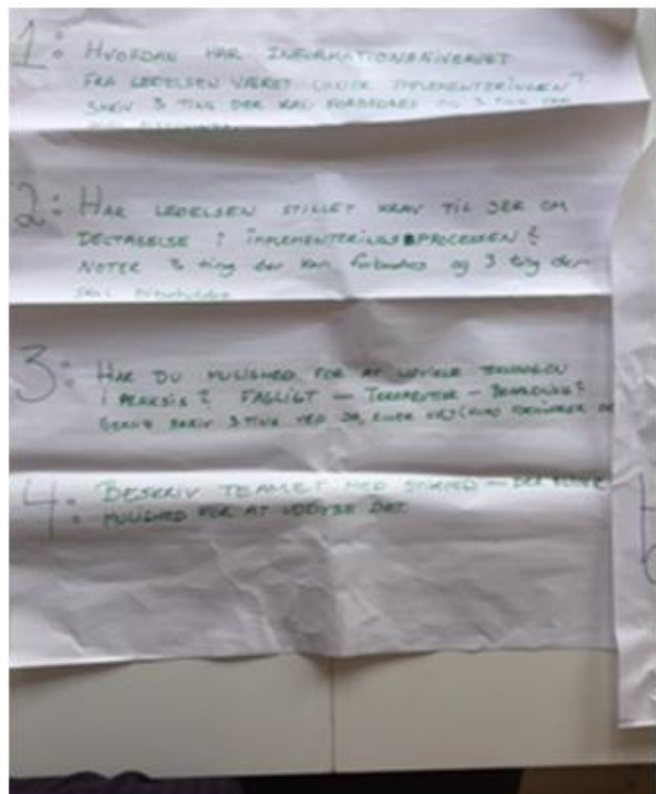 1: HVORDAN HAR INFORMATIONSNIVEAUET
FRA LEDELSEN VÆRET UNDER IMPLEMENTERINGEN?
SKRIV 3 TING DER KAN FORBEDRES OG 3 TING DER
2: HAR LEDELSEN STILLET KRAV TIL JER OM
DELTAGELSE I IMPLEMENTERINGSPROCESSEN?
NOTER 3 ting der kan forbedres og 3 ting der
skal
3: HAR DU MULIGHED FOR AT UDVIKLE
I PRAKSIS? FAGLIGT – – BEHANDLING?
SKRIV 3 TING VED JA, ELLER NEJ (HVAD FORHINDRER
4: BESKRIV TEAMET MED
MULIGHED FOR AT UDDYBE DET